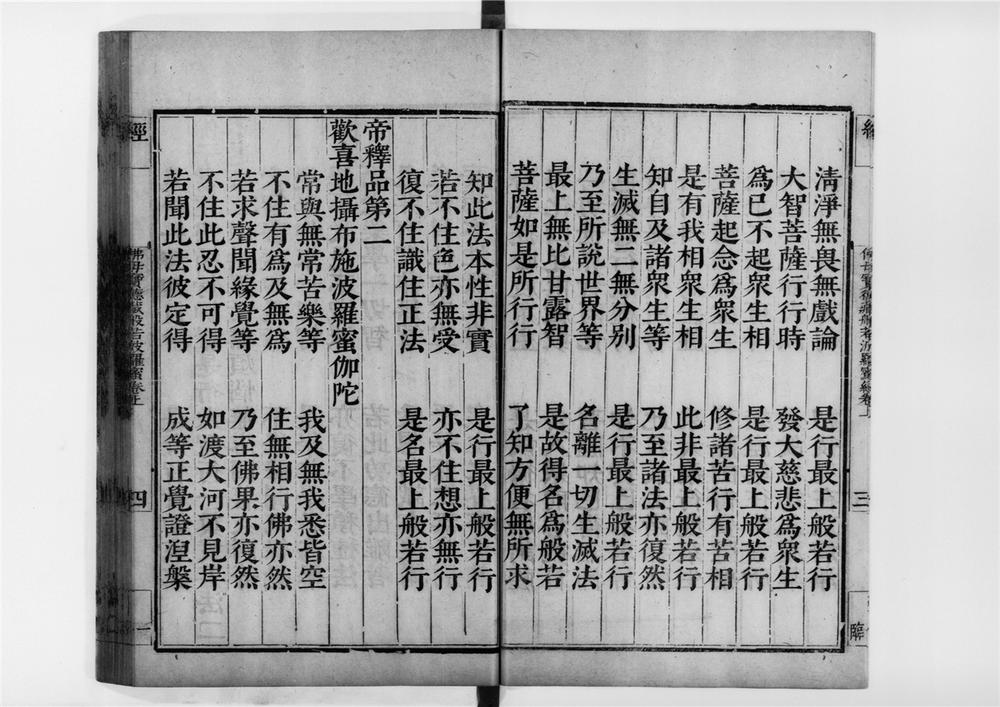 清淨無畏無戲論 是行最上般若行
大智菩薩行行時 發大慈悲為眾生
為已不起眾生相 是行最上般若行
菩薩起念為眾生 修諸苦行有苦相
是有我相眾生相 此非最上般若行
知自及諸眾生等 乃至諸法亦復然
生滅無二無分别 是行最上般若行
乃至所說世界等 名離一切生滅法
最上無比甘露智 是故得名為般若
菩薩如是所行行 了知方便無所求
知此法本性非實 是行最上般若行
若不住色亦無受 亦不住想亦無行
復不住識住正法 是名最上般若行
帝釋品第二
歡喜地攝布施波羅蜜伽陀
常與無常苦樂等 我及無我悉皆空
不住有為及無為 住無相行佛亦然
若求聲聞緣覺等 乃至佛果亦復然
不住此忍不可得 如渡大河不見岸
若聞此法彼定得 成等正覺證涅槃
經
佛母寶德藏般若波羅蜜卷上
四
三